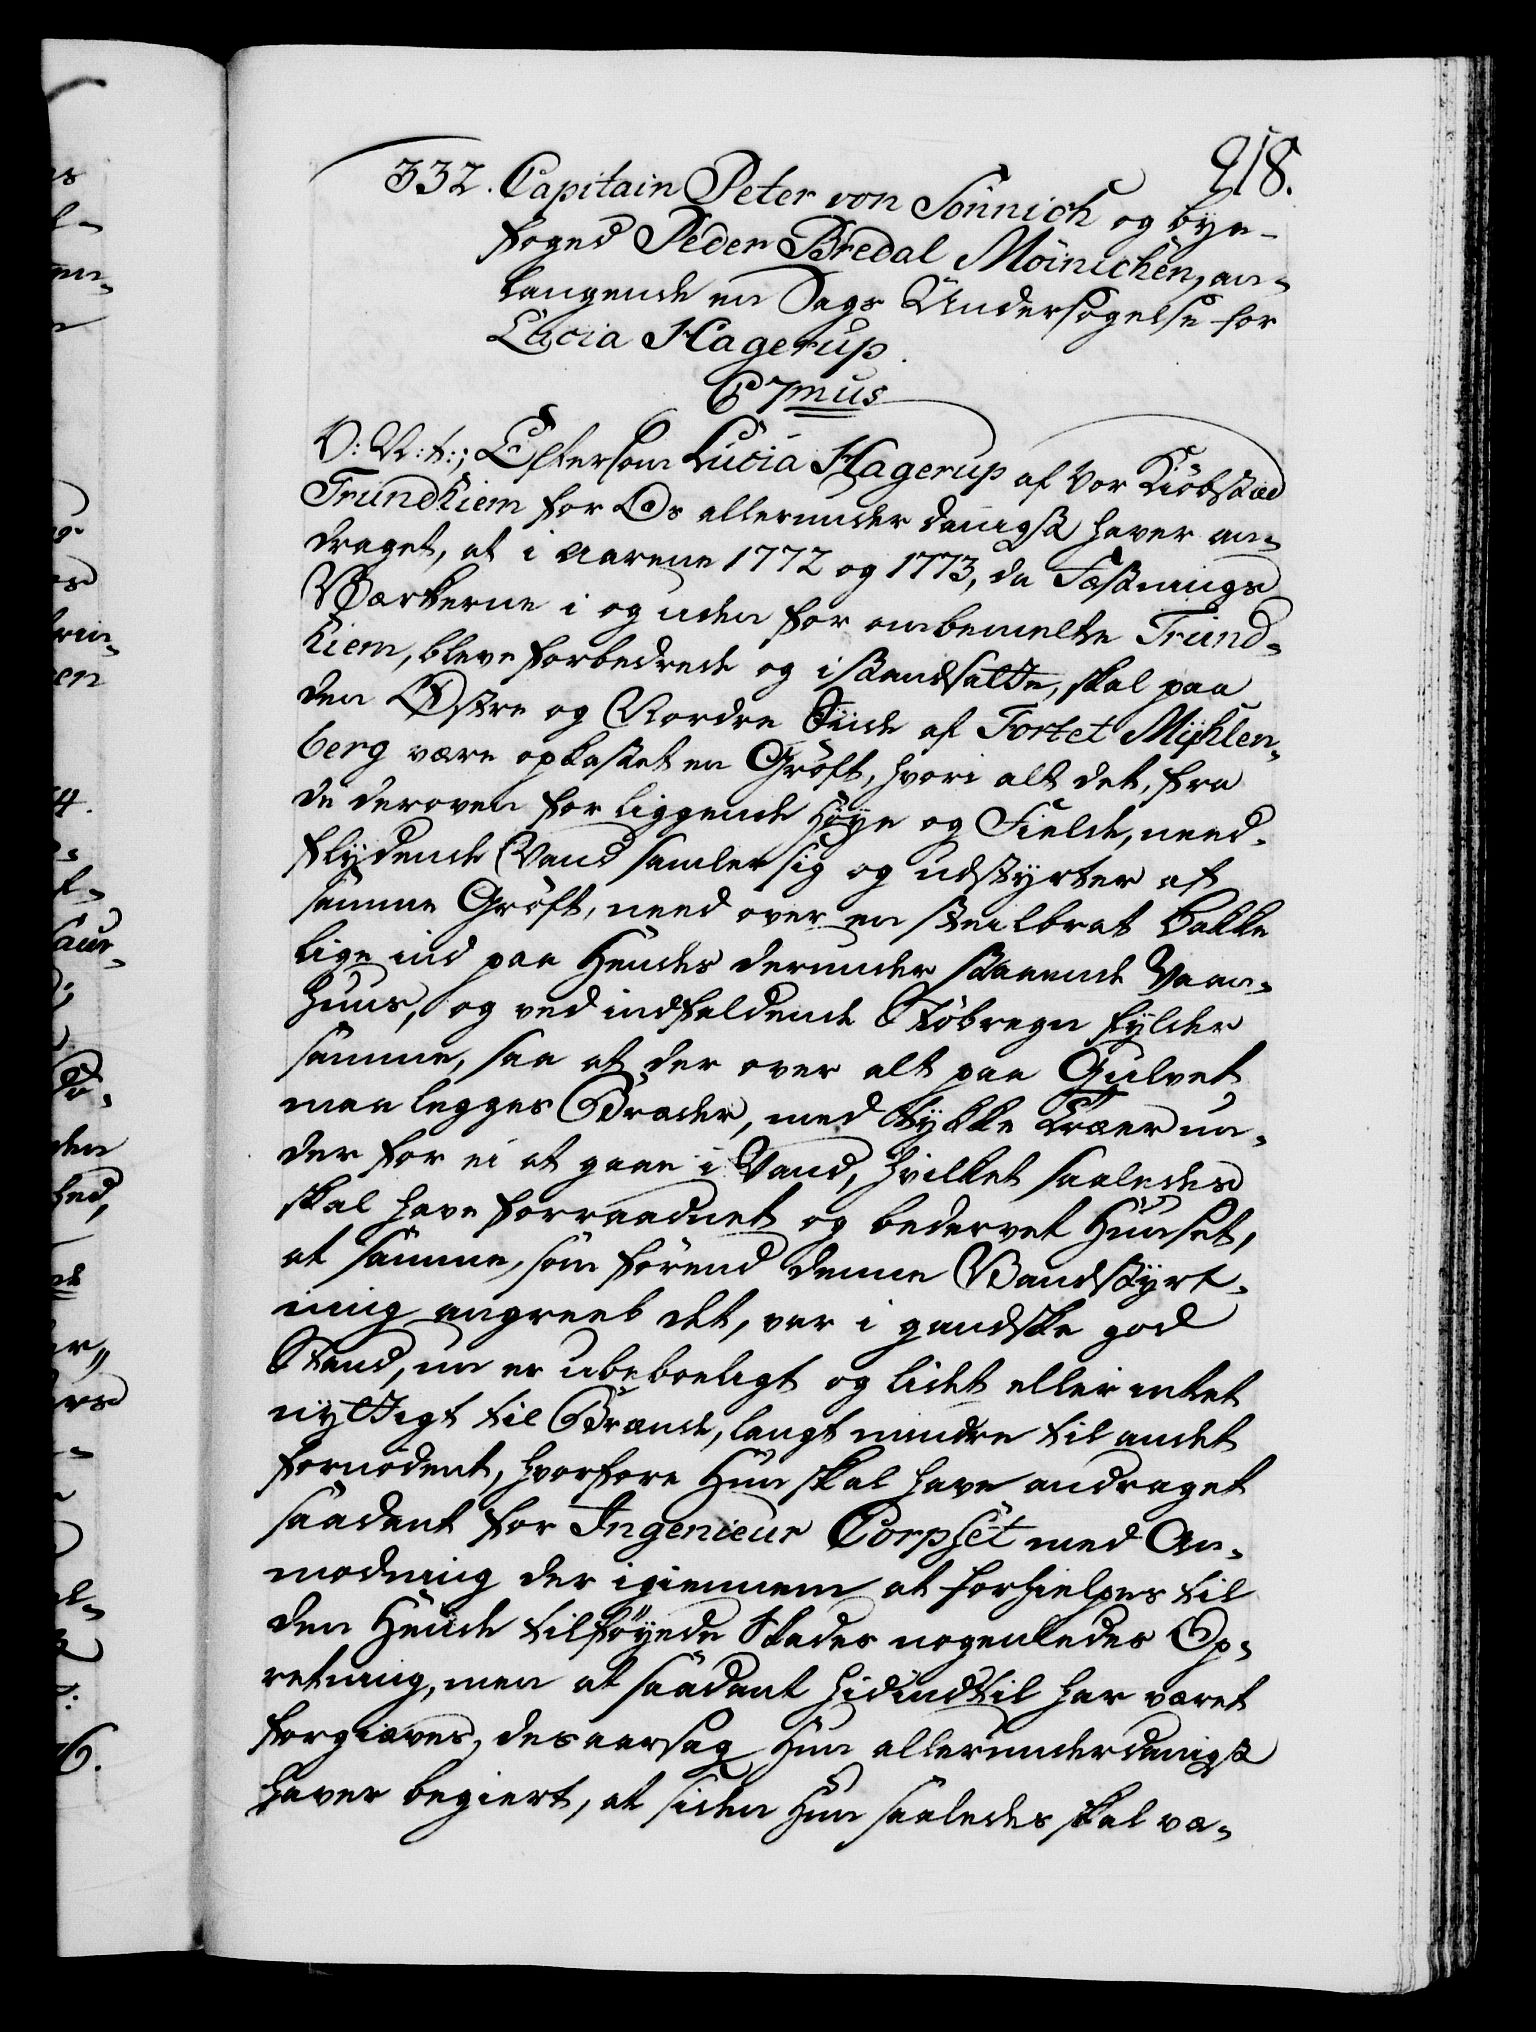 218.
332. Capitain Peter von Sönnich og bye-
foged Peder Bredal Möinichen, an-
langende en Sags Undersøgelse for
Lucia Hagerup.
C 7mus
V: A: t:; Eftersom Lucia Hagerup af Vor Kiöbstæd
Trundhiem for Os allerunderdanigst haver an-
draget, at i Aarene 1772 og 1773, da Fæstnings
Værkerne i og uden for ombemelte Trund-
hiem, bleve forbedrede og istandsatte, skal paa
den Østre og Nordre Siide af Fortet Myhlen-
berg være opkastet en Gröft, hvori alt det, fra
de deroven for liggende Höye og Fielde, need-
flydende Vand samler sig og udstyrter af
samme Gröft, need over en steilbrat Bakke
lige ind paa Hendes derunder staaende Vaan-
huus, og ved indfaldende Støbregn fylder
samme, saa at der over alt paa Gulvet
maa legges Bræder, med tykke Træer un-
der for ei at gaae i Vand, hvilket saaledes
skal have forraadnet og bedervet Huuset,
at samme, som förend denne Vandstyrt-
ning angreeb det, var i gandske god
Stand, nu er ubeboeligt og lidet eller intet
nyttigt til Brænde, langt mindre til andet
fornödent, hvorfore Hun skal have andraget
saadant for Ingenieur Corpset med An-
modning der igiennem at forhielpes til
den Hende tilföyede Skades nogenledes Op-
retning, men at saadant hidindtil har været
forgiæves, desaarsag Hun allerunderdanigst
haver begiert, at siden Hun saaledes skal væ-